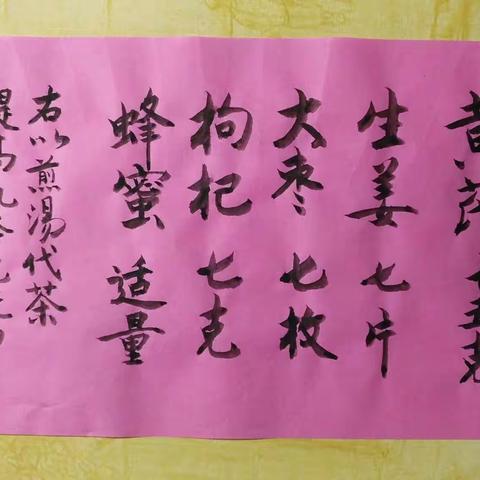 五克
生姜 七片
大枣 七枚
枸杞 七克
蜂蜜 适量
右以煎汤代茶
提高